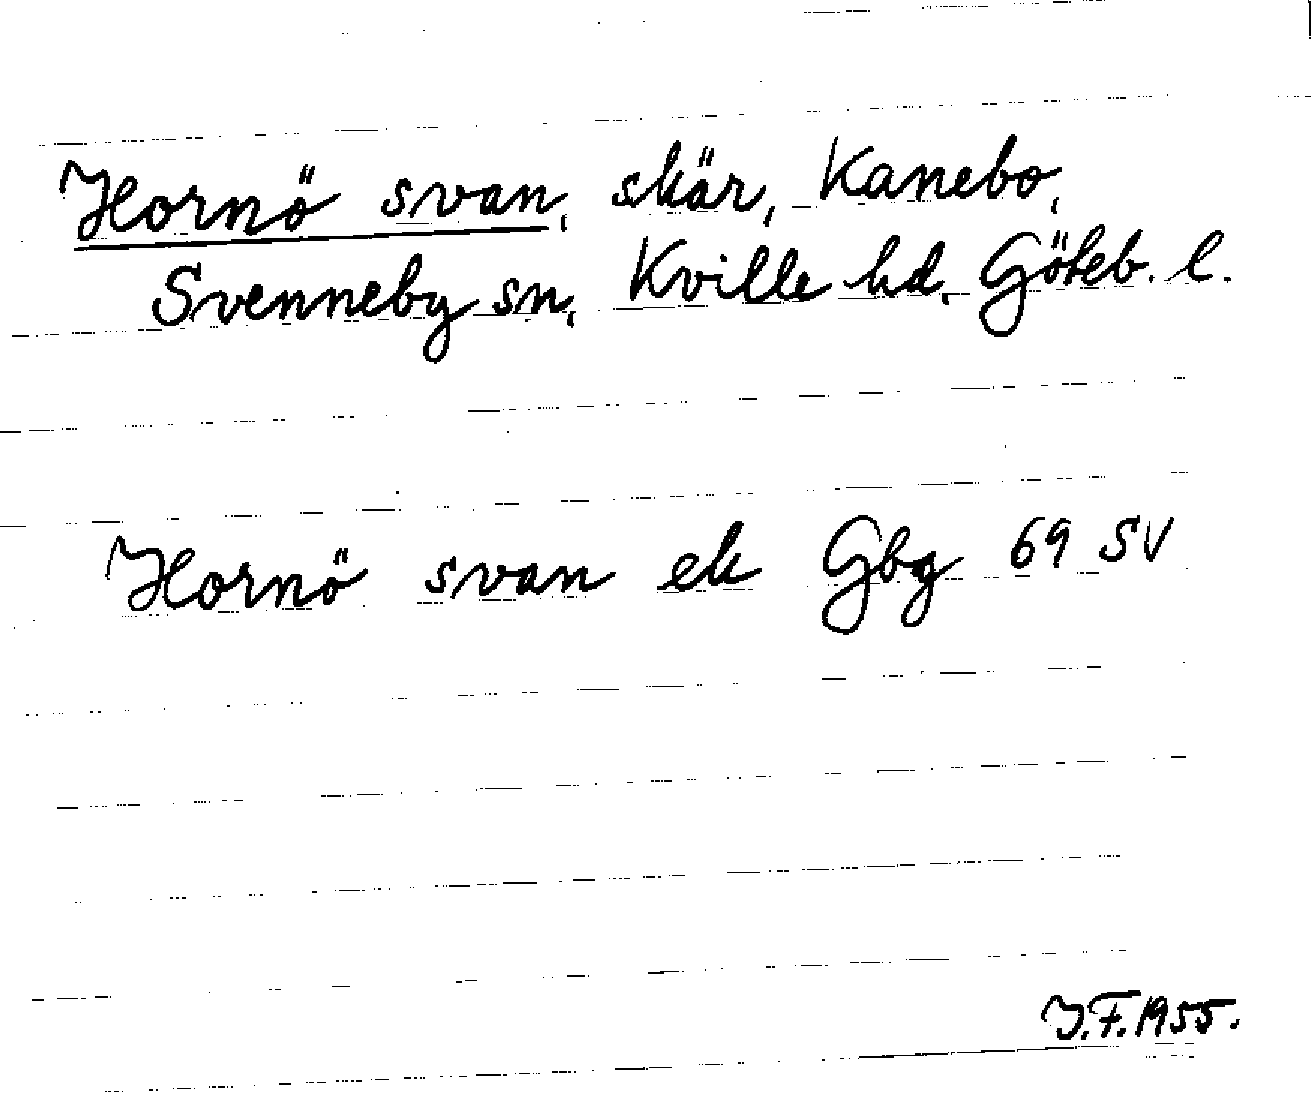 Hornö svan, skär, Kanebo,
Svenneby sn, Kville hd, Göteb. l.
Hornö svan ek Gbg 69 SV
J.F. 1955.